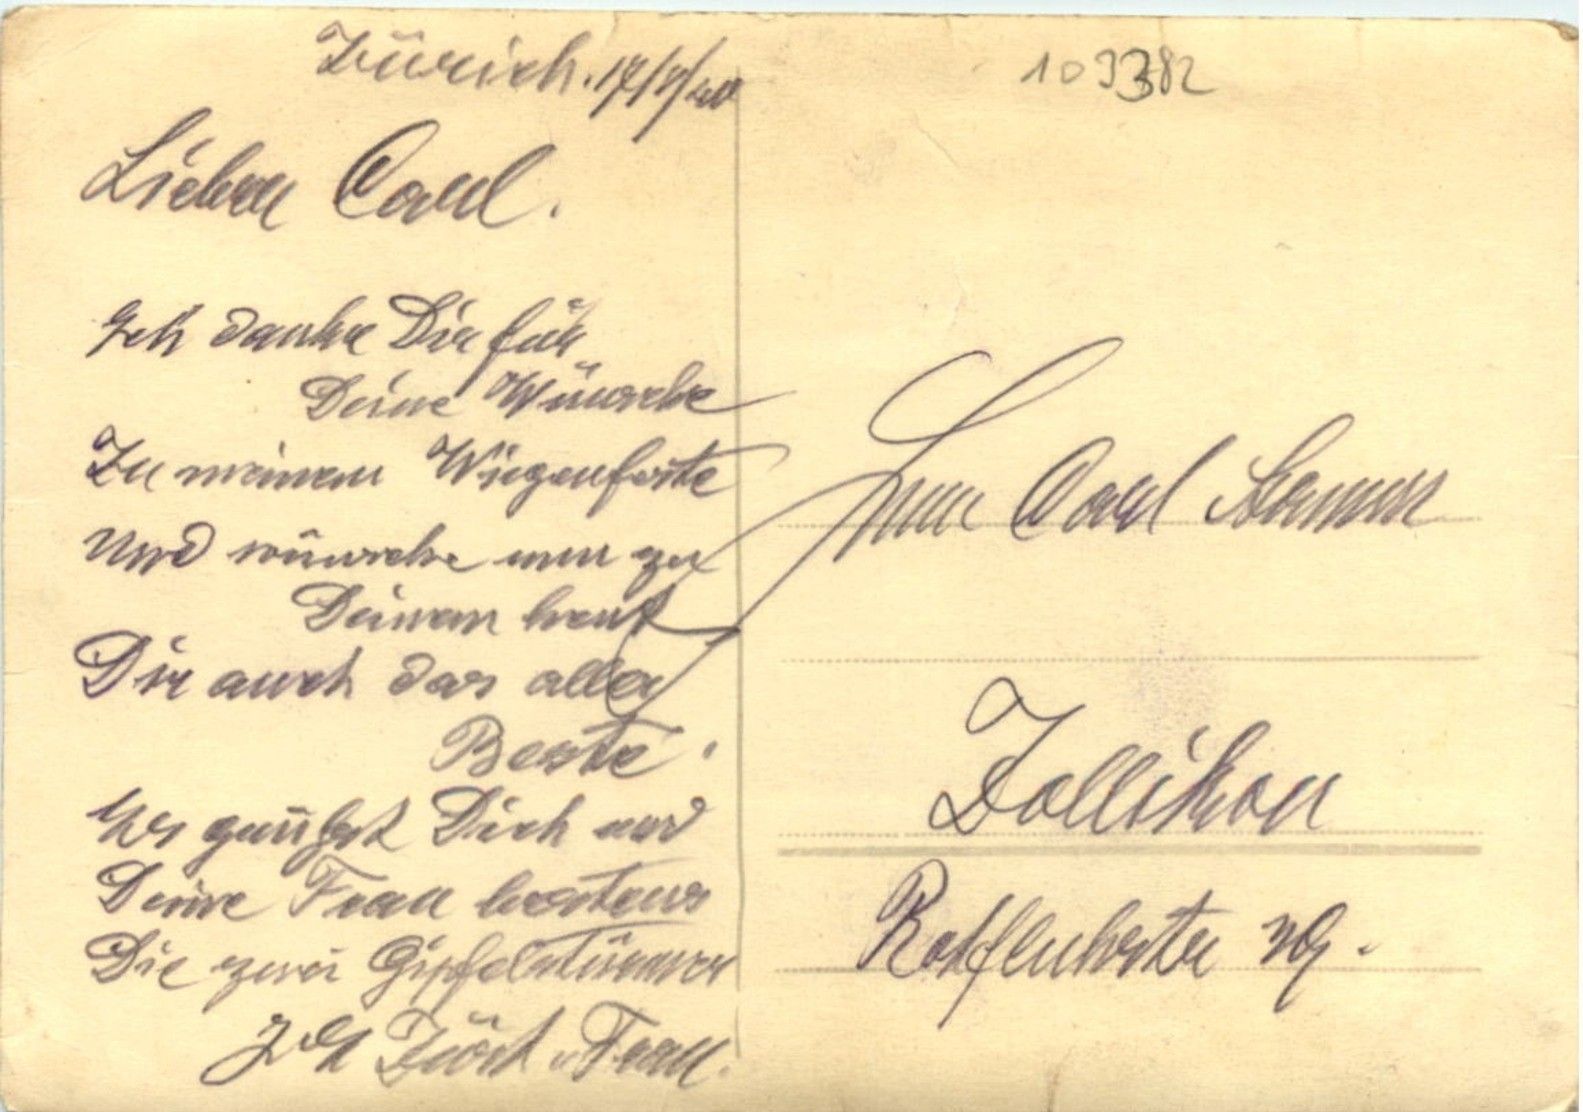 Zürich. 17/8/40
109382
Lieber Carl.
Ich danke Dir für
Deine Wünsche
Zu meinem Wiegenfeste
Und wünsche nun zu
Deinem heut
Dir auch das aller
Beste.
Es grüßt Dich und
Deine Frau bestens
Die zwei Gipfelstürmer
Zürch u. Frau.
Herrn Carl
Zollikon
Rotfluhstr